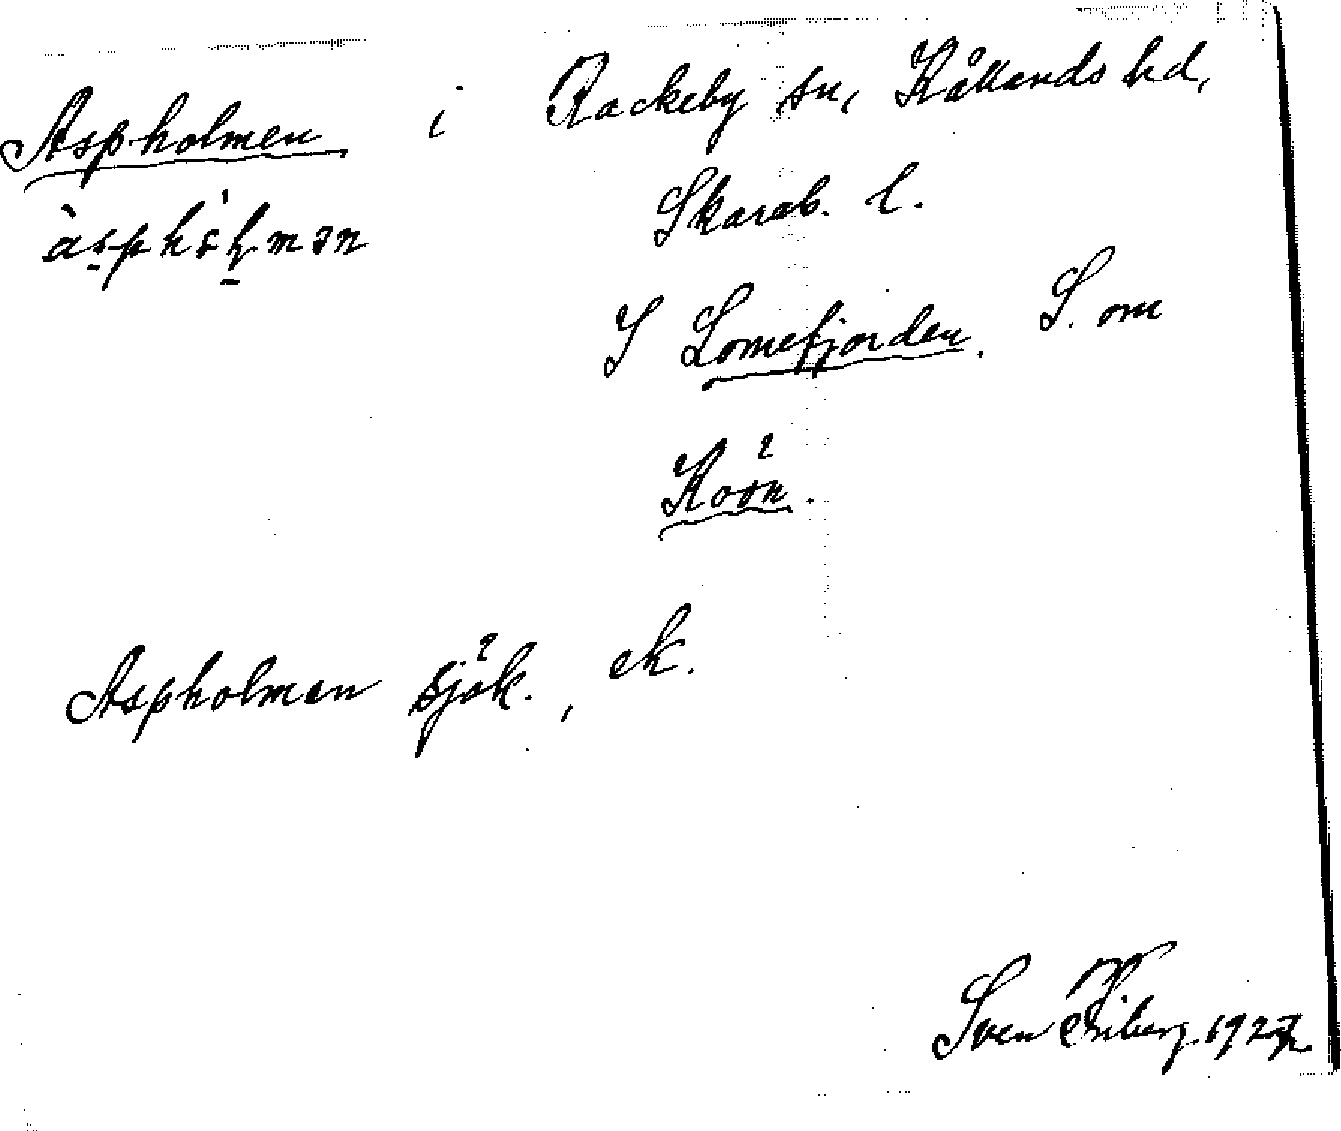 Aspholmen i Rackeby sn, Kållands hd,
Skarab. l.
I Lomefjorden. S. om
Koön.
Aspholmen sjök., ek.
Sven Friberg 1927